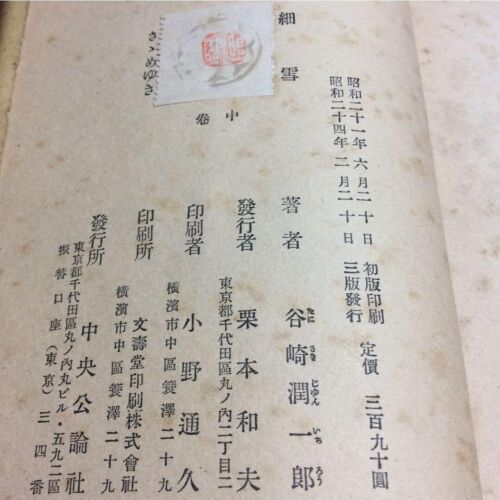 昭和二十一年六月二十日 初版印刷
昭和二十四年二月二十日 三版發行
定價 三百九十圓
細雪
中卷
さゝめゆき
著者 谷崎潤一郎
たに ざき じゆん いち らう
發行者 栗本和夫
東京都千代田區丸ノ內二丁目二
印刷者 小野通久
橫濱市中區簑澤二十九
印刷所 文壽堂印刷株式會社
橫濱市中區簑澤二十九
發行所 中央公論社
東京都千代田區丸ノ內丸ビル・五九二區
振替口座(東京)三四番